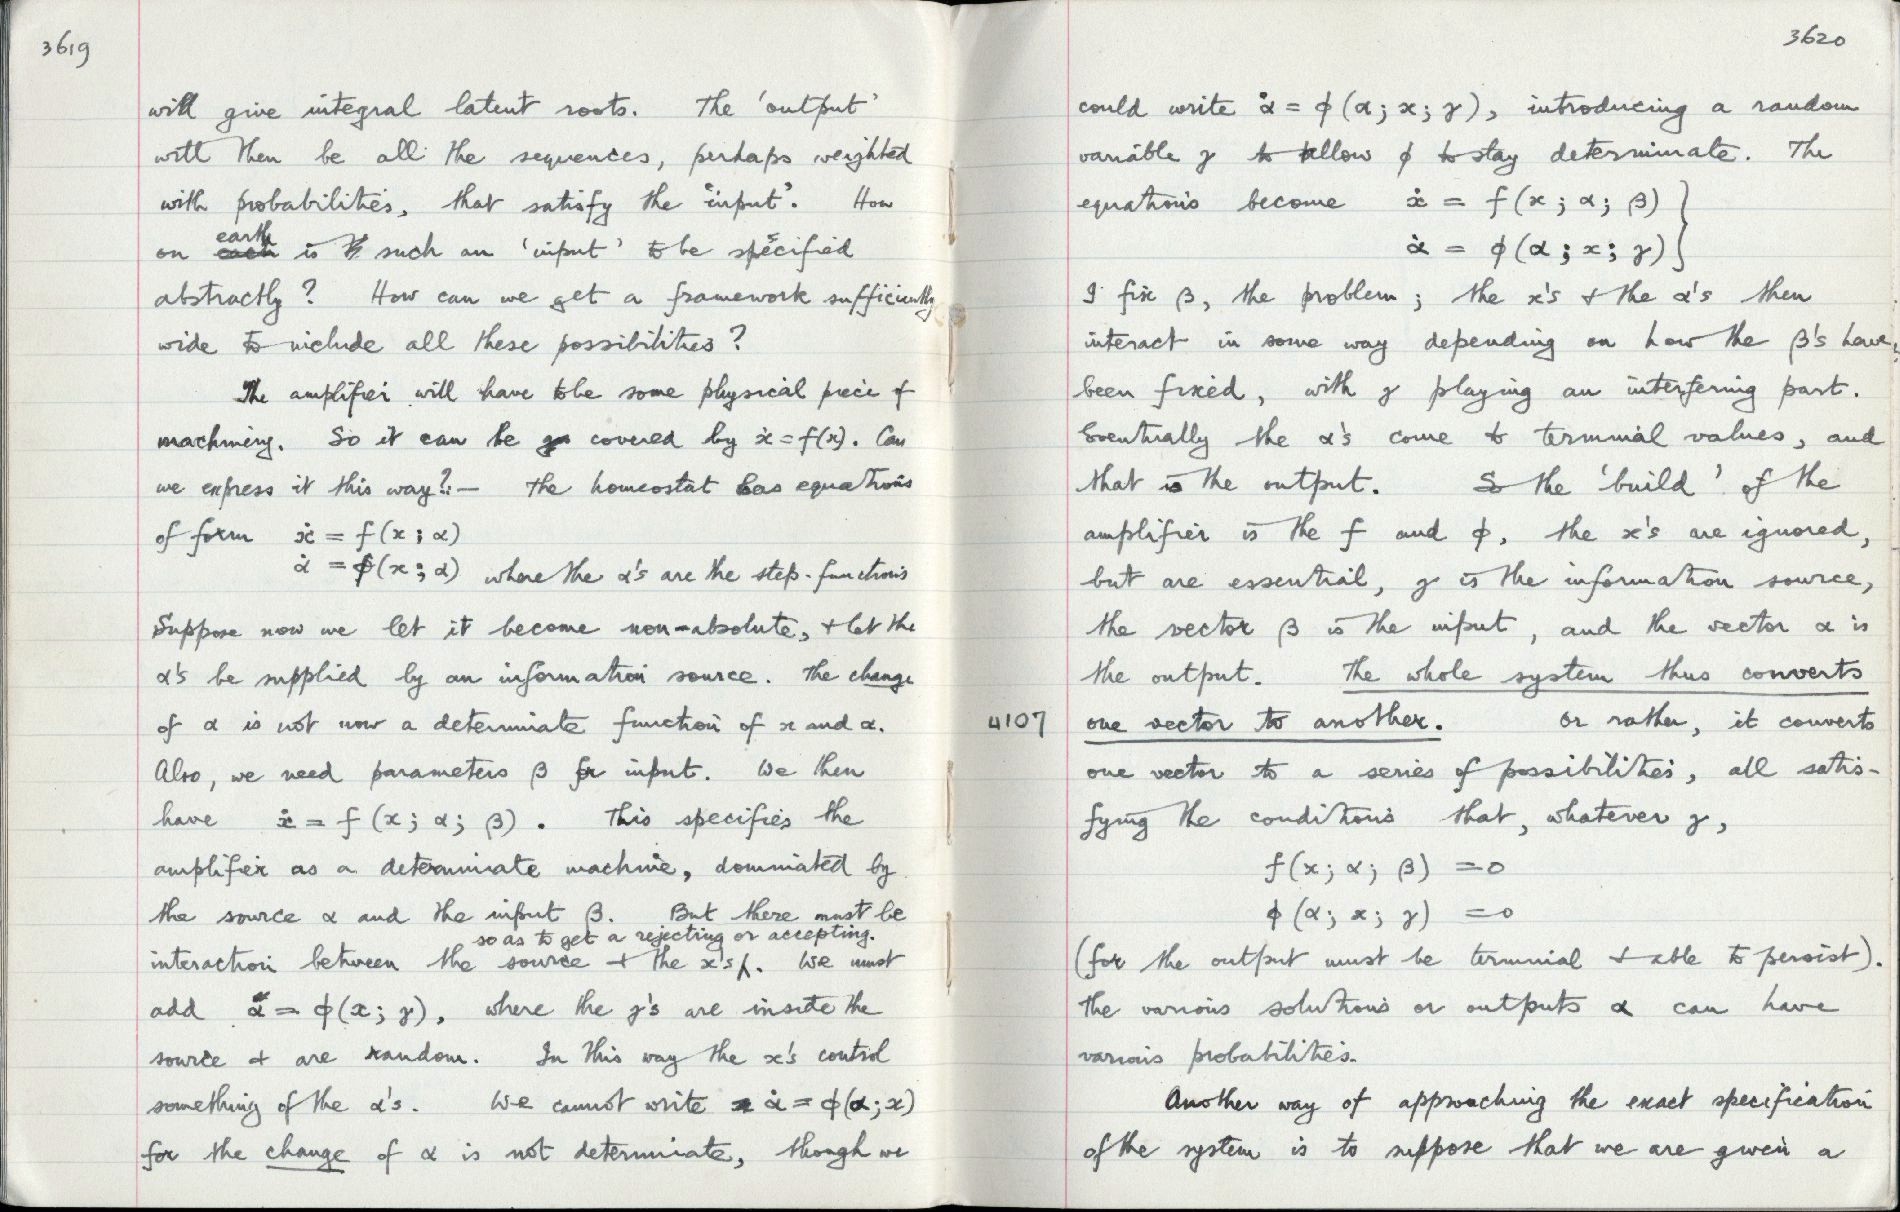 3619
will give integral latent roots. The 'output'
will then be all the sequences, perhaps weighted
with probabilities, that satisfy the 'input'. How
on earth is such an 'input' to be specified
abstractly? How can we get a framework sufficiently
wide to include all these possibilities?
The amplifier will have to be some physical piece of
machinery. So it can be covered by ẋ = f(x). Can
we express it this way?:— The homeostat has equations
of form ẋ = f(x; α)
α̇ = ϕ(x; α) where the α's are the step-functions
Suppose now we let it become non-absolute, & let the
α's be supplied by an information source. The change
of α is not now a determinate function of x and α.
Also, we need parameters β for input. We then
have ẋ = f(x; α; β). This specifies the
amplifier as a determinate machine, dominated by
the source α and the input β. But there must be
interaction between the source & the x's so as to get a rejecting or accepting. We must
add α̇ = ϕ(x; γ), where the γ's are inside the
source & are random. In this way the x's control
something of the α's. We cannot write α̇ = ϕ(α; x)
for the change of α is not determinate, though we
3620
could write α̇ = ϕ(α; x; γ), introducing a random
variable γ to allow ϕ to stay determinate. The
equations become ẋ = f(x; α; β) }
α̇ = ϕ(α; x; γ) }
I fix β, the problem; the x's & the α's then
interact in some way depending on how the β's have
been fixed, with γ playing an interfering part.
Eventually the α's come to terminal values, and
that is the output. So the 'build' of the
amplifier is the f and ϕ, the x's are ignored,
but are essential, γ is the information source,
the vector β is the input, and the vector α is
the output. The whole system thus converts
4107 one vector to another. Or rather, it converts
one vector to a series of possibilities, all satis-
fying the conditions that, whatever γ,
f(x; α; β) = 0
ϕ(α; x; γ) = 0
(for the output must be terminal & able to persist).
The various solutions or outputs α can have
various probabilities.
Another way of approaching the exact specification
of the system is to suppose that we are given a